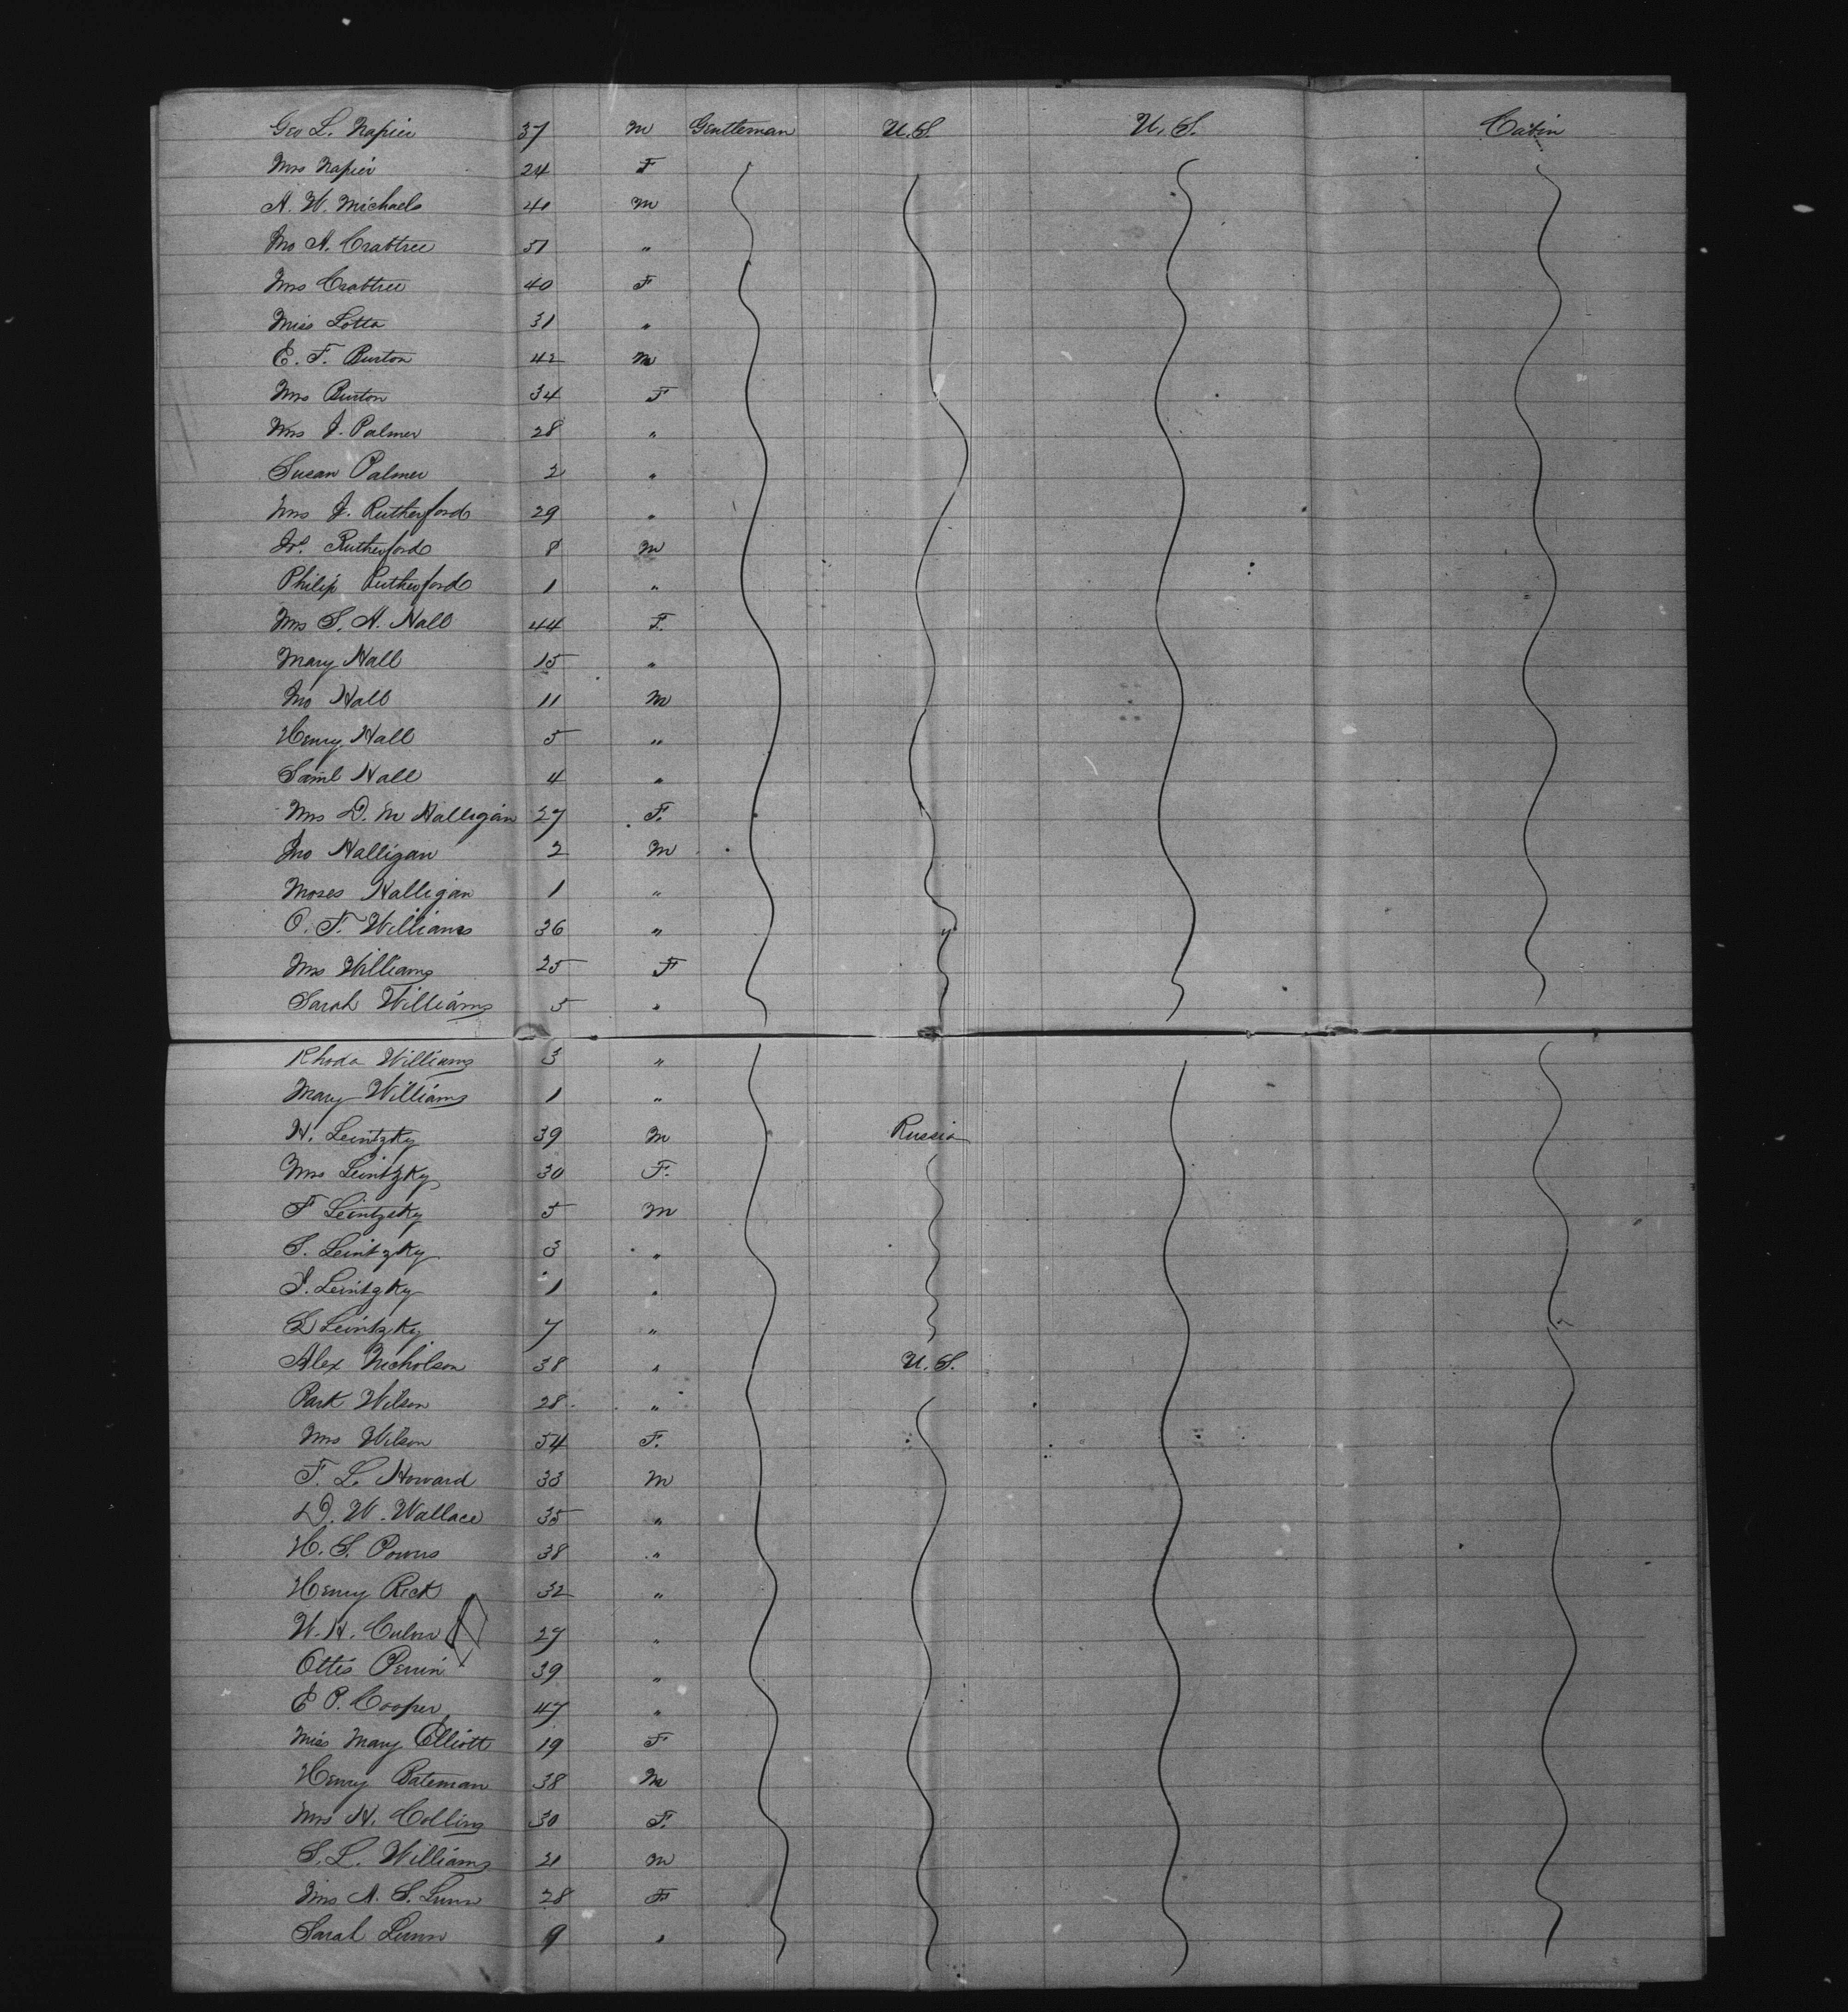 Geo L. Napier 37 M Gentleman U.S. U.S. Cabin
Mrs Napier 24 F
A. W. Michaels 40 M
Jno A. Crabtree 51 "
Mrs Crabtree 40 F
Miss Lotta 31 "
E. F. Burton 42 M
Mrs Burton 34 F
Mrs J. Palmer 28 "
Susan Palmer 2 "
Mrs J. Rutherford 29 "
Jos. Rutherford 8 M
Philip Rutherford 1 "
Mrs S. A. Hall 44 F.
Mary Hall 15 "
Jno Hall 11 M
Henry Hall 5 "
Saml Hall 4 "
Mrs D. M Halligan 27 F.
Jno Halligan 2 M
Moses Halligan 1 "
O. F. Williams 36 "
Mrs Williams 25 F
Sarah Williams 5 "
Rhoda Williams 3 "
Mary Williams 1 "
H. Leintzky 39 M Russia
Mrs Leintzky 30 F.
F Leintzky 5 M
S. Leintzky 3 "
J. Leintzky 1 "
L Leintzky 7 "
Alex Nicholson 38 " U.S.
Park Wilson 28 "
Mrs Wilson 54 F.
F. L. Howard 33 M
D. W. Wallace 35 "
H. S. Powers 38 "
Henry Rick 32 "
W. H. Culver 27 "
Ottis Perrin 39 "
E P. Cooper 47 "
Miss Mary Elliott 19 F
Henry Bateman 38 M
Mrs H. Collins 30 F.
S. L. Williams 21 M
Mrs A. S. Lunn 28 F
Sarah Lunn 9 "